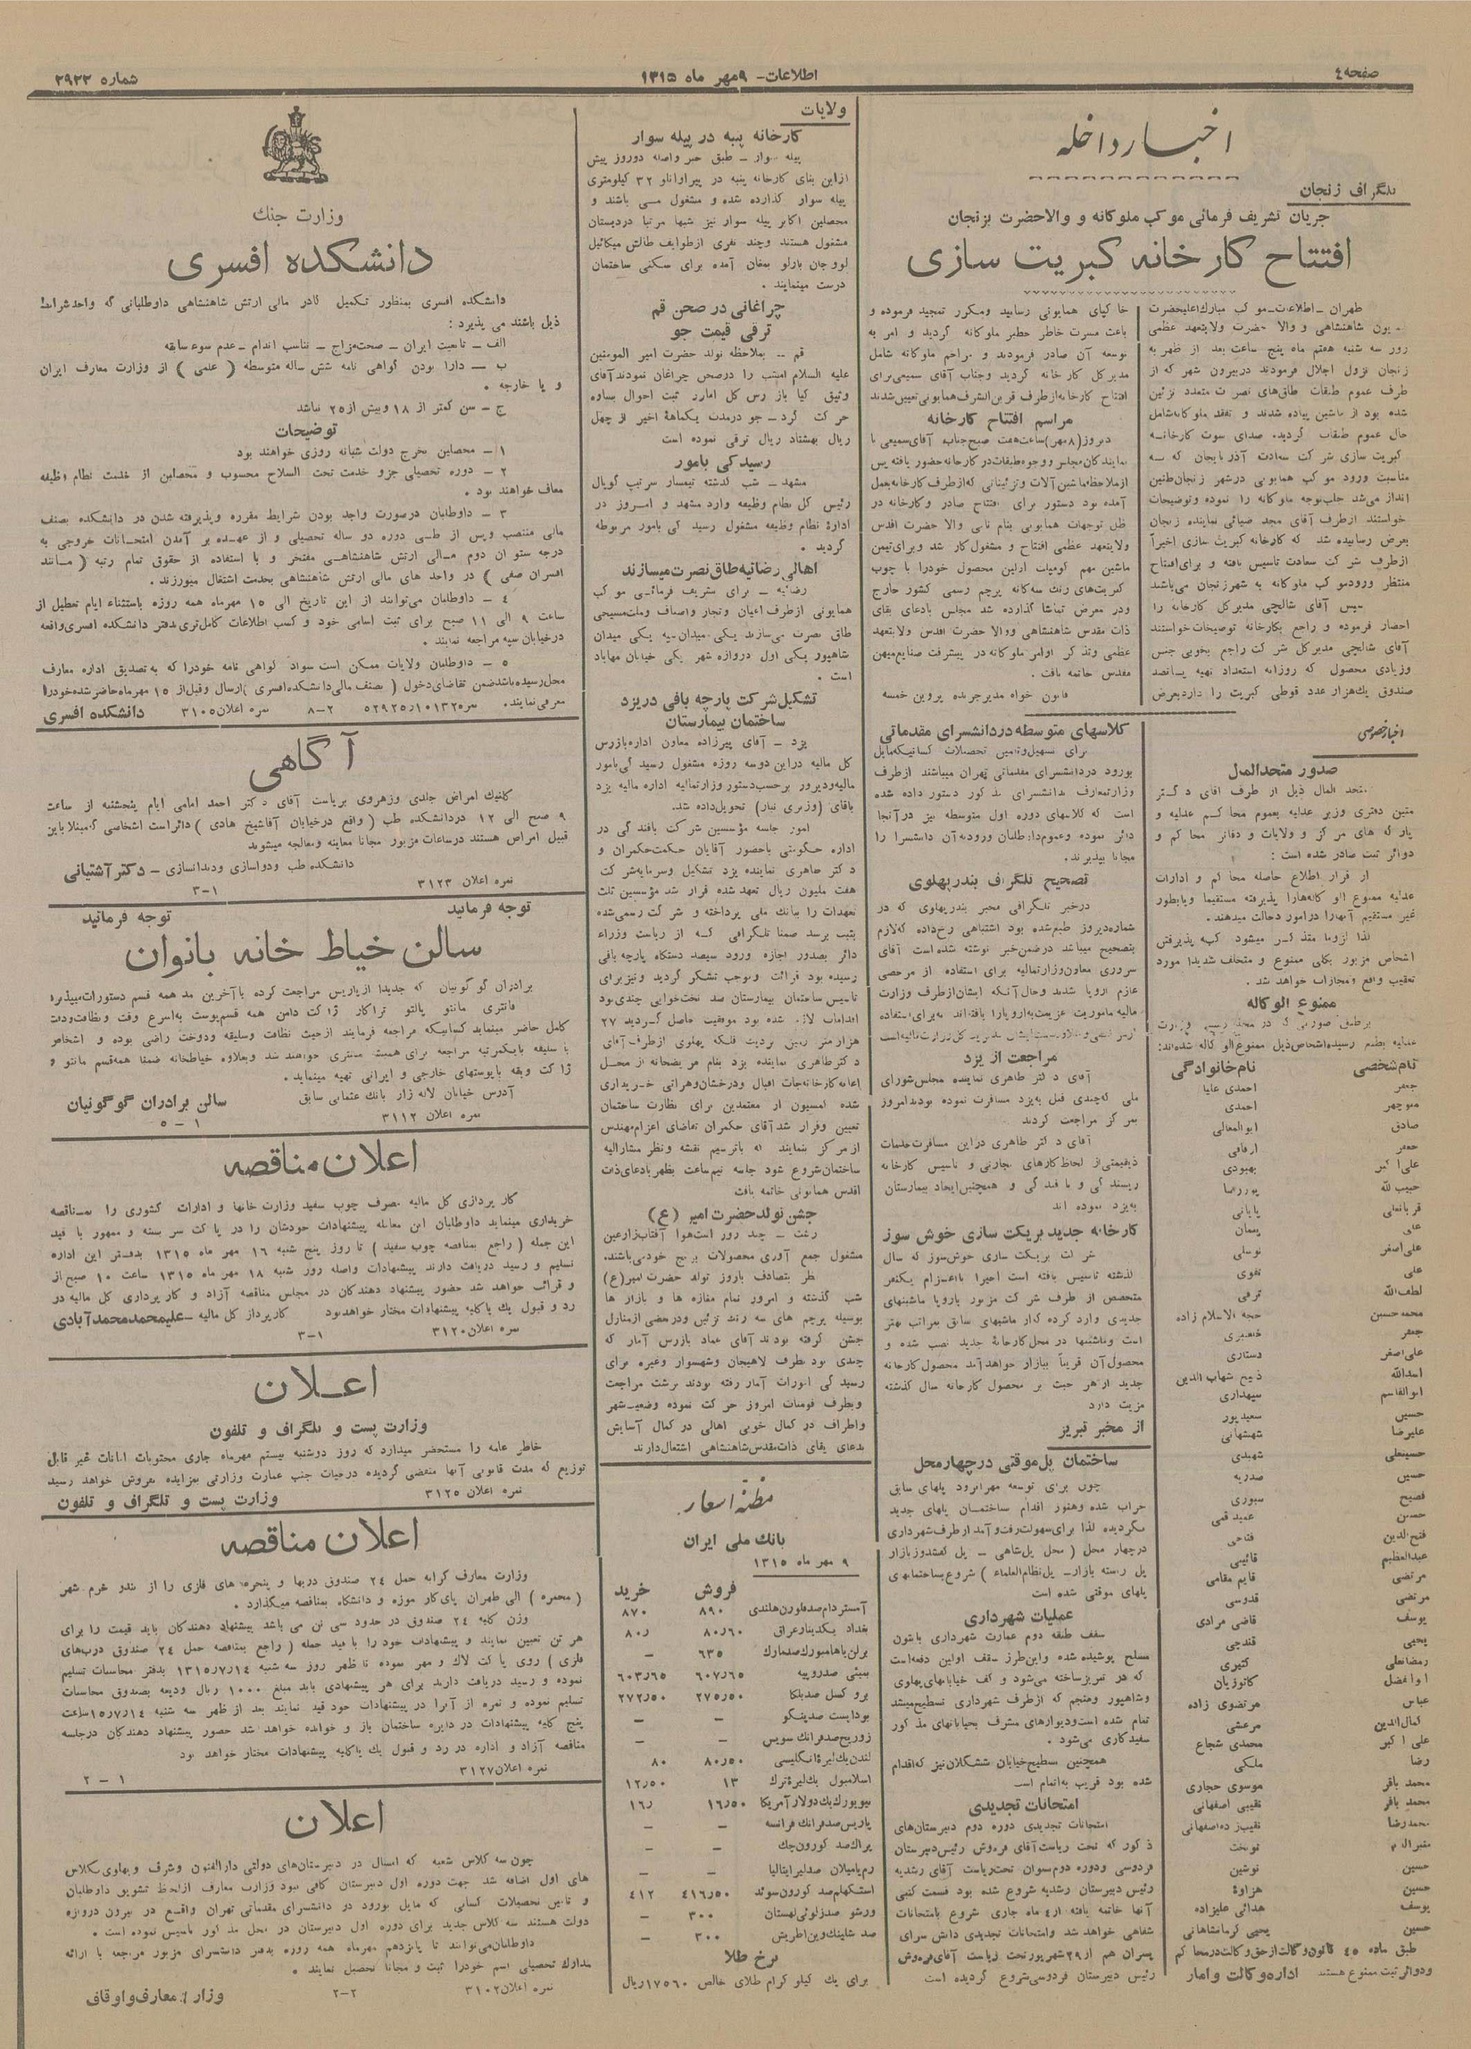 صفحه ٤
اطلاعات - ۹ مهر ماه ۱۳۱۵
شماره ۲۹۲۲
اخبار داخله
تلگراف زنجان
جریان تشریف فرمائی موکب ملوکانه و والاحضرت بزنجان
افتتاح کارخانه کبریت سازی
طهران - اطلاعات - موکب مبارک اعلیحضرت
همایون شاهنشاهی و والا حضرت ولایتعهد عظمی
روز سه شنبه هفتم ماه پنج ساعت بعد از ظهر به
زنجان نزول اجلال فرمودند دربیرون شهر که از
طرف عموم طبقات طاق‌های نصرت متعدد تزئین
شده بود از ماشین پیاده شدند و تفقد ملوکانه شامل
حال عموم طبقات گردید. صدای سوت کارخانه
کبریت سازی شرکت سعادت آذربایجان که به
مناسبت ورود موکب همایونی درشهر زنجان طنین
انداز می‌شد جلب توجه ملوکانه را نموده و توضیحات
خواستند ازطرف آقای مجد ضیائی نماینده زنجان
بعرض رسانیده شد که کارخانه کبریت سازی اخیراً
ازطرف شرکت سعادت تاسیس یافته و برای افتتاح
منتظر ورود موکب ملوکانه به شهر زنجان می‌باشد
سپس آقای شالچی مدیر کل کارخانه را
احضار فرموده و راجع بکارخانه توضیحات خواستند
آقای شالچی مدیرکل شرکت راجع بخوبی جنس
وزیادی محصول که روزانه استعداد تهیه پانصد
صندوق یک‌هزار عدد قوطی کبریت را دارد بعرض
خاکپای همایونی رسانید ومکرر تمجید فرموده و
باعث مسرت خاطر خطیر ملوکانه گردید و امر به
توسعه آن صادر فرمودند و مراحم ملوکانه شامل
مدیر کل کارخانه گردید وجناب آقای سمیعی برای
افتتاح کارخانه ازطرف قرین الشرف همایونی تعیین شدند
مراسم افتتاح کارخانه
دیروز (۸ مهر) ساعت هفت صبح جناب آقای سمیعی با
نمایندگان مجلس و وجوه طبقات در کارخانه حضور یافته پس
ازملاحظه ماشین آلات و تزئیناتی که ازطرف کارخانه بعمل
آمده بود دستور برای افتتاح صادر وکارخانه در
ظل توجهات همایونی بنام نامی والا حضرت اقدس
ولایتعهد عظمی افتتاح و مشغول کار شد وبرای تیمن
ماشین مهم کومپلت اولین محصول خودرا با چوب
کبریت‌های رنگ سه‌گانه پرچم رسمی کشور خارج
ودر معرض تماشا گذارده شد مجلس بادعای بقای
ذات مقدس شاهنشاهی ووالا حضرت اقدس ولایتعهد
عظمی وتذکر اوامر ملوکانه در پیشرفت صنایع میهن
مقدس خاتمه یافت.
قانون خواه مدیر جریده پروین خمسه
اخبار خصوصی
صدور متحدالمال
متحدالمال ذیل از طرف آقای دکتر
متین دفتری وزیر عدلیه بعموم محاکم عدلیه و
پارکه های مرکز و ولایات و دفاتر محاکم و
دوائر ثبت صادر شده است :
از قرار اطلاع حاصله محاکم و ادارات
عدلیه ممنوع الوکاله‌هارا پذیرفته مستقیما ویابطور
غیر مستقیم آنهارا درامور دخالت میدهند.
لذا لزوما متذکر میشود که پذیرفتن
اشخاص مزبور بکلی ممنوع و متخلف شدیدا مورد
تعقیب واقع ومجازات خواهد شد.
ممنوع الوکاله
برطبق صورتی که در مجله رسمی وزارت
عدلیه بطبع رسیده اشخاص ذیل ممنوع الوکاله شده‌اند:
نام شخصی نام خانوادگی
جعفر احمدی علیا
منوچهر احمدی
صادق ابوالمعالی
جعفر ارفاقی
علی اکبر بهبودی
حبیب الله پوررضا
قربانعلی پایانی
علی پیمان
علی اصغر توسلی
علی تقوی
لطف الله ترقی
محمد حسین حجة الاسلام زاده
جعفر خنجری
علی اصغر دستاری
اسدالله ذبیح شهاب الدین
ابوالقاسم سپهداری
حسین سعیدپور
علیرضا شهشهانی
حسینعلی شهیدی
حسین صدریه
فصیح صبوری
حسن عمید قمی
فتح الدین فتاحی
عبدالعظیم قائینی
مرتضی قایم مقامی
مرتضی قدوسی
یوسف قاضی مرادی
یحیی قندچی
رمضانعلی کثیری
ابوالفضل کاتوزیان
عباس مرتضوی زاده
کمال الدین مرعشی
علی اکبر محمدی شجاع
رضا ملکی
محمد باقر موسوی حجازی
محمد باقر نقیبی اصفهانی
محمد رضا نقیب زاده اصفهانی
نوبخت
حسین نوشین
حسین هزاوۀ
یوسف هدائی علیزاده
حسین یحیی کرمانشاهانی
طبق ماده ٤٥ قانون وکالت ازحق وکالت در محاکم
ودوائر ثبت ممنوع هستند اداره وکالت و آمار
کلاسهای متوسطه در دانشسرای مقدماتی
برای تسهیل وتامین تحصیلات کسانیکه مایل
بورود دردانشسرای مقدماتی تهران میباشند ازطرف
وزارت معارف بدانشسرای مذکور دستور داده شده
است که کلاسهای دوره اول متوسطه نیز در آنجا
دائر نموده وعموم داوطلبان ورود به آن دانشسرا را
مجانا بپذیرند.
تصحیح تلگراف بندر پهلوی
درخبر تلگرافی مخبر بندرپهلوی که در
شماره دیروز طبع شده بود اشتباهی رخ داده که لازم
بتصحیح میباشد درضمن خبر نوشته شده است آقای
سروری معاون وزارت مالیه برای استفاده از مرخصی
عازم اروپا شدند وحال آنکه ایشان ازطرف وزارت
مالیه ماموریت عزیمت به اروپا را یافته‌اند نه برای استفاده
مراجعت از یزد
آقای دکتر طاهری نماینده مجلس شورای
ملی که چندی قبل به یزد مسافرت نموده بودند امروز
بمرکز مراجعت کردند
آقای دکتر طاهری دراین مسافرت خدمات
ذیقیمتی از لحاظ کارهای تجارتی و تاسیس کارخانه
ریسندگی و بافندگی و همچنین ایجاد بیمارستان
به یزد نموده اند
کارخانه جدید بریکت سازی خوش سوز
شرکت بریکت سازی خوش‌سوز که سال
گذشته تاسیس یافته است اخیرا با اعزام یکنفر
متخصص از طرف شرکت مزبور باروپا ماشینهای
جدیدی وارد کرده که از ماشینهای سابق بمراتب بهتر
است وماشینها در محل کارخانۀ جدید نصب شده و
محصول آن قریباً ببازار خواهد آمد محصول کارخانه
جدید ازهر حیث بر محصول کارخانه سال گذشته
مزیت دارد
از مخبر تبریز
ساختمان پل موقتی درچهار محل
چون برای توسعه مهرانرود پلهای سابق
خراب شده وهنوز اقدام ساختمان پلهای جدید
نگردیده لذا برای سهولت رفت و آمد ازطرف شهرداری
درچهار محل ( محل پل شاهی - پل کفشدوز بازار
پل رسته بازار - پل نظام العلماء ) شروع بساختمانهای
پلهای موقتی شده است
عملیات شهرداری
سقف طبقه دوم عمارت شهرداری بابتون
مسلح پوشیده شده واین طرز سقف اولین دفعه است
که در تبریز ساخته می‌شود و کف خیابانهای پهلوی
وشاهپور ومنجم که ازطرف شهرداری تسطیح میشد
تمام شده است ودیوارهای مشرف بخیابانهای مذکور
سفیدکاری می‌شود.
همچنین تسطیح خیابان ششگلان نیز که اقدام
شده بود قریب به اتمام است
امتحانات تجدیدی
امتحانات تجدیدی دوره دوم دبیرستان‌های
ذکور که تحت ریاست آقای فره‌وش رئیس دبیرستان
فردوسی ودوره دوم نسوان تحت ریاست آقای رشدیه
رئیس دبیرستان رشدیه شروع شده بود قسمت کتبی
آنها خاتمه یافته از ٤ ماه جاری شروع بامتحانات
شفاهی خواهد شد وامتحانات تجدیدی دانش سرای
پسران هم از ۲۹ شهریور تحت ریاست آقای فره‌وش
رئیس دبیرستان فردوسی شروع گردیده است
ولایات
کارخانه پنبه در پیله سوار
پیله سوار - طبق خبر واصله دوروز پیش
ازاین بنای کارخانه پنبه در پیراوانلو ۳۲ کیلومتری
پیله سوار گذارده شده و مشغول می باشند و
محصلین اکابر پیله سوار نیز شبها مرتبا دردبستان
مشغول هستند وچند نفری ازطوایف طالش میکائیل
لووجان بارلو بمغان آمده برای سکنی ساختمان
درست مینمایند.
چراغانی در صحن قم
ترقی قیمت جو
قم - بملاحظه تولد حضرت امیر المومنین
علیه السلام امشب را درصحن چراغان نمودند آقای
وثیق کیا بازرس کل اداره ثبت احوال بساوه
حرکت کرد - جو درمدت یکماهۀ اخیر از چهل
ریال بهشتاد ریال ترقی نموده است
رسیدگی بامور
مشهد - شب گذشته تیمسار سرتیپ گوپال
رئیس کل نظام وظیفه وارد مشهد و امروز در
ادارۀ نظام وظیفه مشغول رسیدگی بامور مربوطه
گردید.
اهالی رضائیه طاق نصرت میسازند
رضائیه - برای تشریف فرمائی موکب
همایونی ازطرف اعیان وتجار واصناف وملت مسیحی
طاق نصرت می‌سازند یکی میدان سپه یکی میدان
شاهپور یکی اول دروازه شهر یکی خیابان مهاباد
است.
تشکیل شرکت پارچه بافی دریزد
ساختمان بیمارستان
یزد - آقای پیرزاده معاون اداره بازرس
کل مالیه دراین دوسه روزه مشغول رسیدگی بامور
مالیه ودیروز برحسب دستور وزارت مالیه اداره مالیه یزد
باقای (وزیری تبار) تحویل داده شد.
امور جلسه مؤسسین شرکت بافندگی در
اداره حکومتی باحضور آقایان حکمت حکمران و
دکتر طاهری نماینده یزد تشکیل وسرمایه شرکت
هفت ملیون ریال تعهد شده قرار شد مؤسسین ثلث
تعهدات را ببانک ملی پرداخته و شرکت رسمی شده
بثبت برسد ضمنا تلگرافی که از ریاست وزراء
دائر بصدور اجازه ورود سیصد دستگاه پارچه بافی
رسیده بود قرائت وموجب تشکر گردید ونیز برای
تاسیس ساختمان بیمارستان صد تخت‌خوابی چندی بود
اقدامات لازم شده بود موفقیت حاصل گردید ۲۷
هزار متر زمین نزدیک فلکه پهلوی ازطرف آقای
دکتر طاهری نماینده یزد بنام مریضخانه از محل
اعانه کارخانجات اقبال ودرخشان وهراتی خریداری
شده کمیسیون از معتمدین برای نظارت ساختمان
تعیین وقرار شد آقای حکمران تقاضای اعزام مهندس
ازمرکز بنمایند که باترسیم نقشه ونظر مشارالیه
ساختمان شروع شود جلسه نیم ساعت بظهر بادعای ذات
اقدس همایونی خاتمه یافت
جشن تولد حضرت امیر (ع)
رشت - چند روز است هوا آفتاب زارعین
مشغول جمع آوری محصولات برنج خود می‌باشند.
نظر بتصادف باروز تولد حضرت امیر(ع)
شب گذشته و امروز تمام مغازه ها و بازار ها
بوسیله پرچم های سه رنگ تزئین ودربعضی ازمنازل
جشن گرفته بودند آقای عماد بازرس آمار که
چندی بود بطرف لاهیجان وشهسوار وغیره برای
رسیدگی امورات آمار رفته بودند برشت مراجعت
وبطرف فومنات امروز حرکت نموده وضعیت شهر
واطراف در کمال خوبی اهالی در کمال آسایش
بدعای بقای ذات مقدس شاهنشاهی اشتغال دارند
مظنه اسعار
بانک ملی ایران
۹ مهر ماه ۱۳۱۵
فروش خرید
آمستردام صد فلورن هلندی ۸۹۰ ۸۷۰
بغداد یکدینار عراق ۸۰٫۶۰ ۸۰٫
برلن یاهامبورک صدمارک ۶۳۵ -
بمبئی صد روپیه ۶۰۷٫۶۵ ۶۰۳٫۶۵
بروکسل صد بلگا ۲۷۵٫۵۰ ۲۷۲٫۵۰
بوداپست صد پنگو - -
زوریخ صد فرانک سویس - -
لندن یک لیرۀ انگلیسی ۸۰٫۵۰ ۸۰
اسلامبول یک لیرۀ ترک ۱۳ ۱۲٫۵۰
نیویورک یک دولار آمریکا ۱۶٫۵۰ ۱۶٫
پاریس صد فرانک فرانسه - -
پراک صد کورون چک - -
رم یامیلان صد لیر ایتالیا - -
استکهلم صد کورون سوئد ۴۱۶٫۵۰ ۴۱۲
ورشو صد زلوتی لهستان ۳۰۰ -
صد شلینک وین اطریش ۳۰۰ -
نرخ طلا
برای یک کیلو گرام طلای خالص ۱۷۵۶۰ ریال
وزارت جنگ
دانشکده افسری
دانشکده افسری بمنظور تکمیل کادر مالی ارتش شاهنشاهی داوطلبانی که واجد شرائط
ذیل باشند می پذیرد :
الف - تابعیت ایران - صحت مزاج - تناسب اندام - عدم سوء سابقه
ب - دارا بودن گواهی نامه شش ساله متوسطه ( علمی ) از وزارت معارف ایران
و یا خارجه .
ج - سن کمتر از ۱۸ و بیش از ۲۵ نباشد
توضیحات
۱ - محصلین بخرج دولت شبانه روزی خواهند بود
۲ - دوره تحصیلی جزو خدمت تحت السلاح محسوب و محصلین از خدمت نظام وظیفه
معاف خواهند بود .
۳ - داوطلبان درصورت واجد بودن شرایط مقرره وپذیرفته شدن در دانشکده بصنف
مالی منتصب وپس از طی دوره دو ساله تحصیلی و از عهده بر آمدن امتحانات خروجی به
درجه ستوان دوم مالی ارتش شاهنشاهی مفتخر و با استفاده از حقوق تمام رتبه ( مانند
افسران صفی ) در واحد های مالی ارتش شاهنشاهی بخدمت اشتغال میورزند.
٤ - داوطلبان می‌توانند از این تاریخ الی ۱۵ مهرماه همه روزه باستثناء ایام تعطیل از
ساعت ۹ الی ۱۱ صبح برای ثبت اسامی خود و کسب اطلاعات کامل‌تری بدفتر دانشکده افسری واقعه
درخیابان سپه مراجعه نمایند .
۵ - داوطلبان ولایات ممکن است سواد گواهی نامه خودرا که به تصدیق اداره معارف
محل رسیده باشد ضمن تقاضای دخول ( بصنف مالی دانشکده افسری ) ارسال وقبل از ۱۵ مهرماه حاضر شده خودرا
معرفی نمایند. نمره ۵۲۹۲۵٫۱۰۱۳۲ ۲-۸ نمره اعلان ۳۱۰۵ دانشکده افسری
آگاهی
کلنیک امراض جلدی وزهروی بریاست آقای دکتر احمد امامی ایام پنجشنبه از ساعت
۹ صبح الی ۱۲ دردانشکده طب ( واقع درخیابان آقاشیخ هادی ) دائر است اشخاصی که مبتلا باین
قبیل امراض هستند درساعات مزبور مجانا معاینه ومعالجه میشوند
دانشکده طب ودواسازی ودندانسازی - دکتر آشتیانی
نمره اعلان ۳۱۲۳ ۱-۳
توجه فرمائید توجه فرمائید
سالن خیاط خانه بانوان
برادران گوگونیان که جدیدا ازپاریس مراجعت کرده باآخرین مد همه قسم دستورات میپذیرد
فانتزی مانتو پالتو تراکار ژاکت دامن همه قسم پوست به اسرع وقت ونظافت ودقت
کامل حاضر مینماید کسانیکه مراجعه فرمایند ازحیث نظافت وسلیقه ودوخت راضی بوده و اشخاص
با سلیقه بایکمرتبه مراجعه برای همیشه مشتری خواهند شد وبعلاوه خیاطخانه ضمنا همه قسم مانتو و
ژاکت ویقه باپوستهای خارجی و ایرانی تهیه مینماید.
آدرس خیابان لاله زار بانک عثمانی سابق سالن برادران گوگونیان
نمره اعلان ۳۱۱۲ ۱-۵
اعلان مناقصه
کارپردازی کل مالیه مصرف چوب سفید وزارت خانها و ادارات کشوری را بمناقصه
خریداری مینماید داوطلبان این معامله پیشنهادات خودشان را در پاکت سر بسته و ممهور با قید
این جمله ( راجع بمناقصه چوب سفید ) تا روز پنج شنبه ۱۶ مهر ماه ۱۳۱۵ بدفتر این اداره
تسلیم و رسید دریافت دارند پیشنهادات واصله روز شنبه ۱۸ مهر ماه ۱۳۱۵ ساعت ۱۰ صبح باز
و قرائت خواهد شد حضور پیشنهاد دهندگان در مجلس مناقصه آزاد و کارپردازی کل مالیه در
رد و قبول یک یاکلیه پیشنهادات مختار خواهد بود کارپرداز کل مالیه - علیمحمد محمدآبادی
نمره اعلان ۳۱۲۰ ۱-۳
اعلان
وزارت پست و تلگراف و تلفون
خاطر عامه را مستحضر میدارد که روز دوشنبه بیستم مهرماه جاری محتویات امانات غیر قابل
توزیع که مدت قانونی آنها منقضی گردیده درحیاط جنب عمارت وزارتی بمزایده بفروش خواهد رسید
نمره اعلان ۳۱۲۵ وزارت پست و تلگراف و تلفون
اعلان مناقصه
وزارت معارف کرایه حمل ۲٤ صندوق دربها و پنجره های فلزی را از بندر خرم شهر
( محمره ) الی طهران پای کار موزه و دانشگاه بمناقصه میگذارد .
وزن کلیه ۲٤ صندوق در حدود سی تن می باشد پیشنهاد دهندگان باید قیمت را برای
هر تن تعیین نمایند و پیشنهادات خود را با قید جمله ( راجع بمناقصه حمل ۲٤ صندوق درب‌های
فلزی ) روی پاکت لاک و مهر نموده تا ظهر روز سه شنبه ۱۳۱۵/۷/۱٤ بدفتر محاسبات تسلیم
نموده و رسید دریافت دارند برای هر پیشنهادی باید مبلغ ۱۰۰۰ ریال ودیعه بصندوق محاسبات
تسلیم نموده و نمره از آنرا در پیشنهادات خود قید نمایند بعد از ظهر سه شنبه ۱۵/۷/۱٤ ساعت
پنج کلیه پیشنهادات در دایره ساختمان باز و خوانده خواهد شد حضور پیشنهاد دهندگان درجلسه
مناقصه آزاد و اداره در رد و قبول یک یاکلیه پیشنهادات مختار خواهد بود
نمره اعلان ۳۱۲۷ ۱ - ۲
اعلان
چون سه کلاس شعبه که امسال در دبیرستان‌های دولتی دارالفنون وشرف وپهلوی بکلاس
های اول اضافه شد جهت دوره اول دبیرستان کافی نبود وزارت معارف ازلحاظ تشویق داوطلبان
و تامین تحصیلات کسانی که مایل بورود در دانشسرای مقدماتی تهران واقع در بیرون دروازه
دولت هستند سه کلاس جدید برای دوره اول دبیرستان در محل مذکور تاسیس نموده است .
داوطلبان می‌توانند تا پانزدهم مهرماه همه روزه بدفتر دانشسرای مزبور مراجعه با ارائه
مدارک تحصیلی اسم خودرا ثبت و مجانا تحصیل نمایند .
نمره اعلان ۳۱۰۲ ۲-۲ وزارت معارف و اوقاف